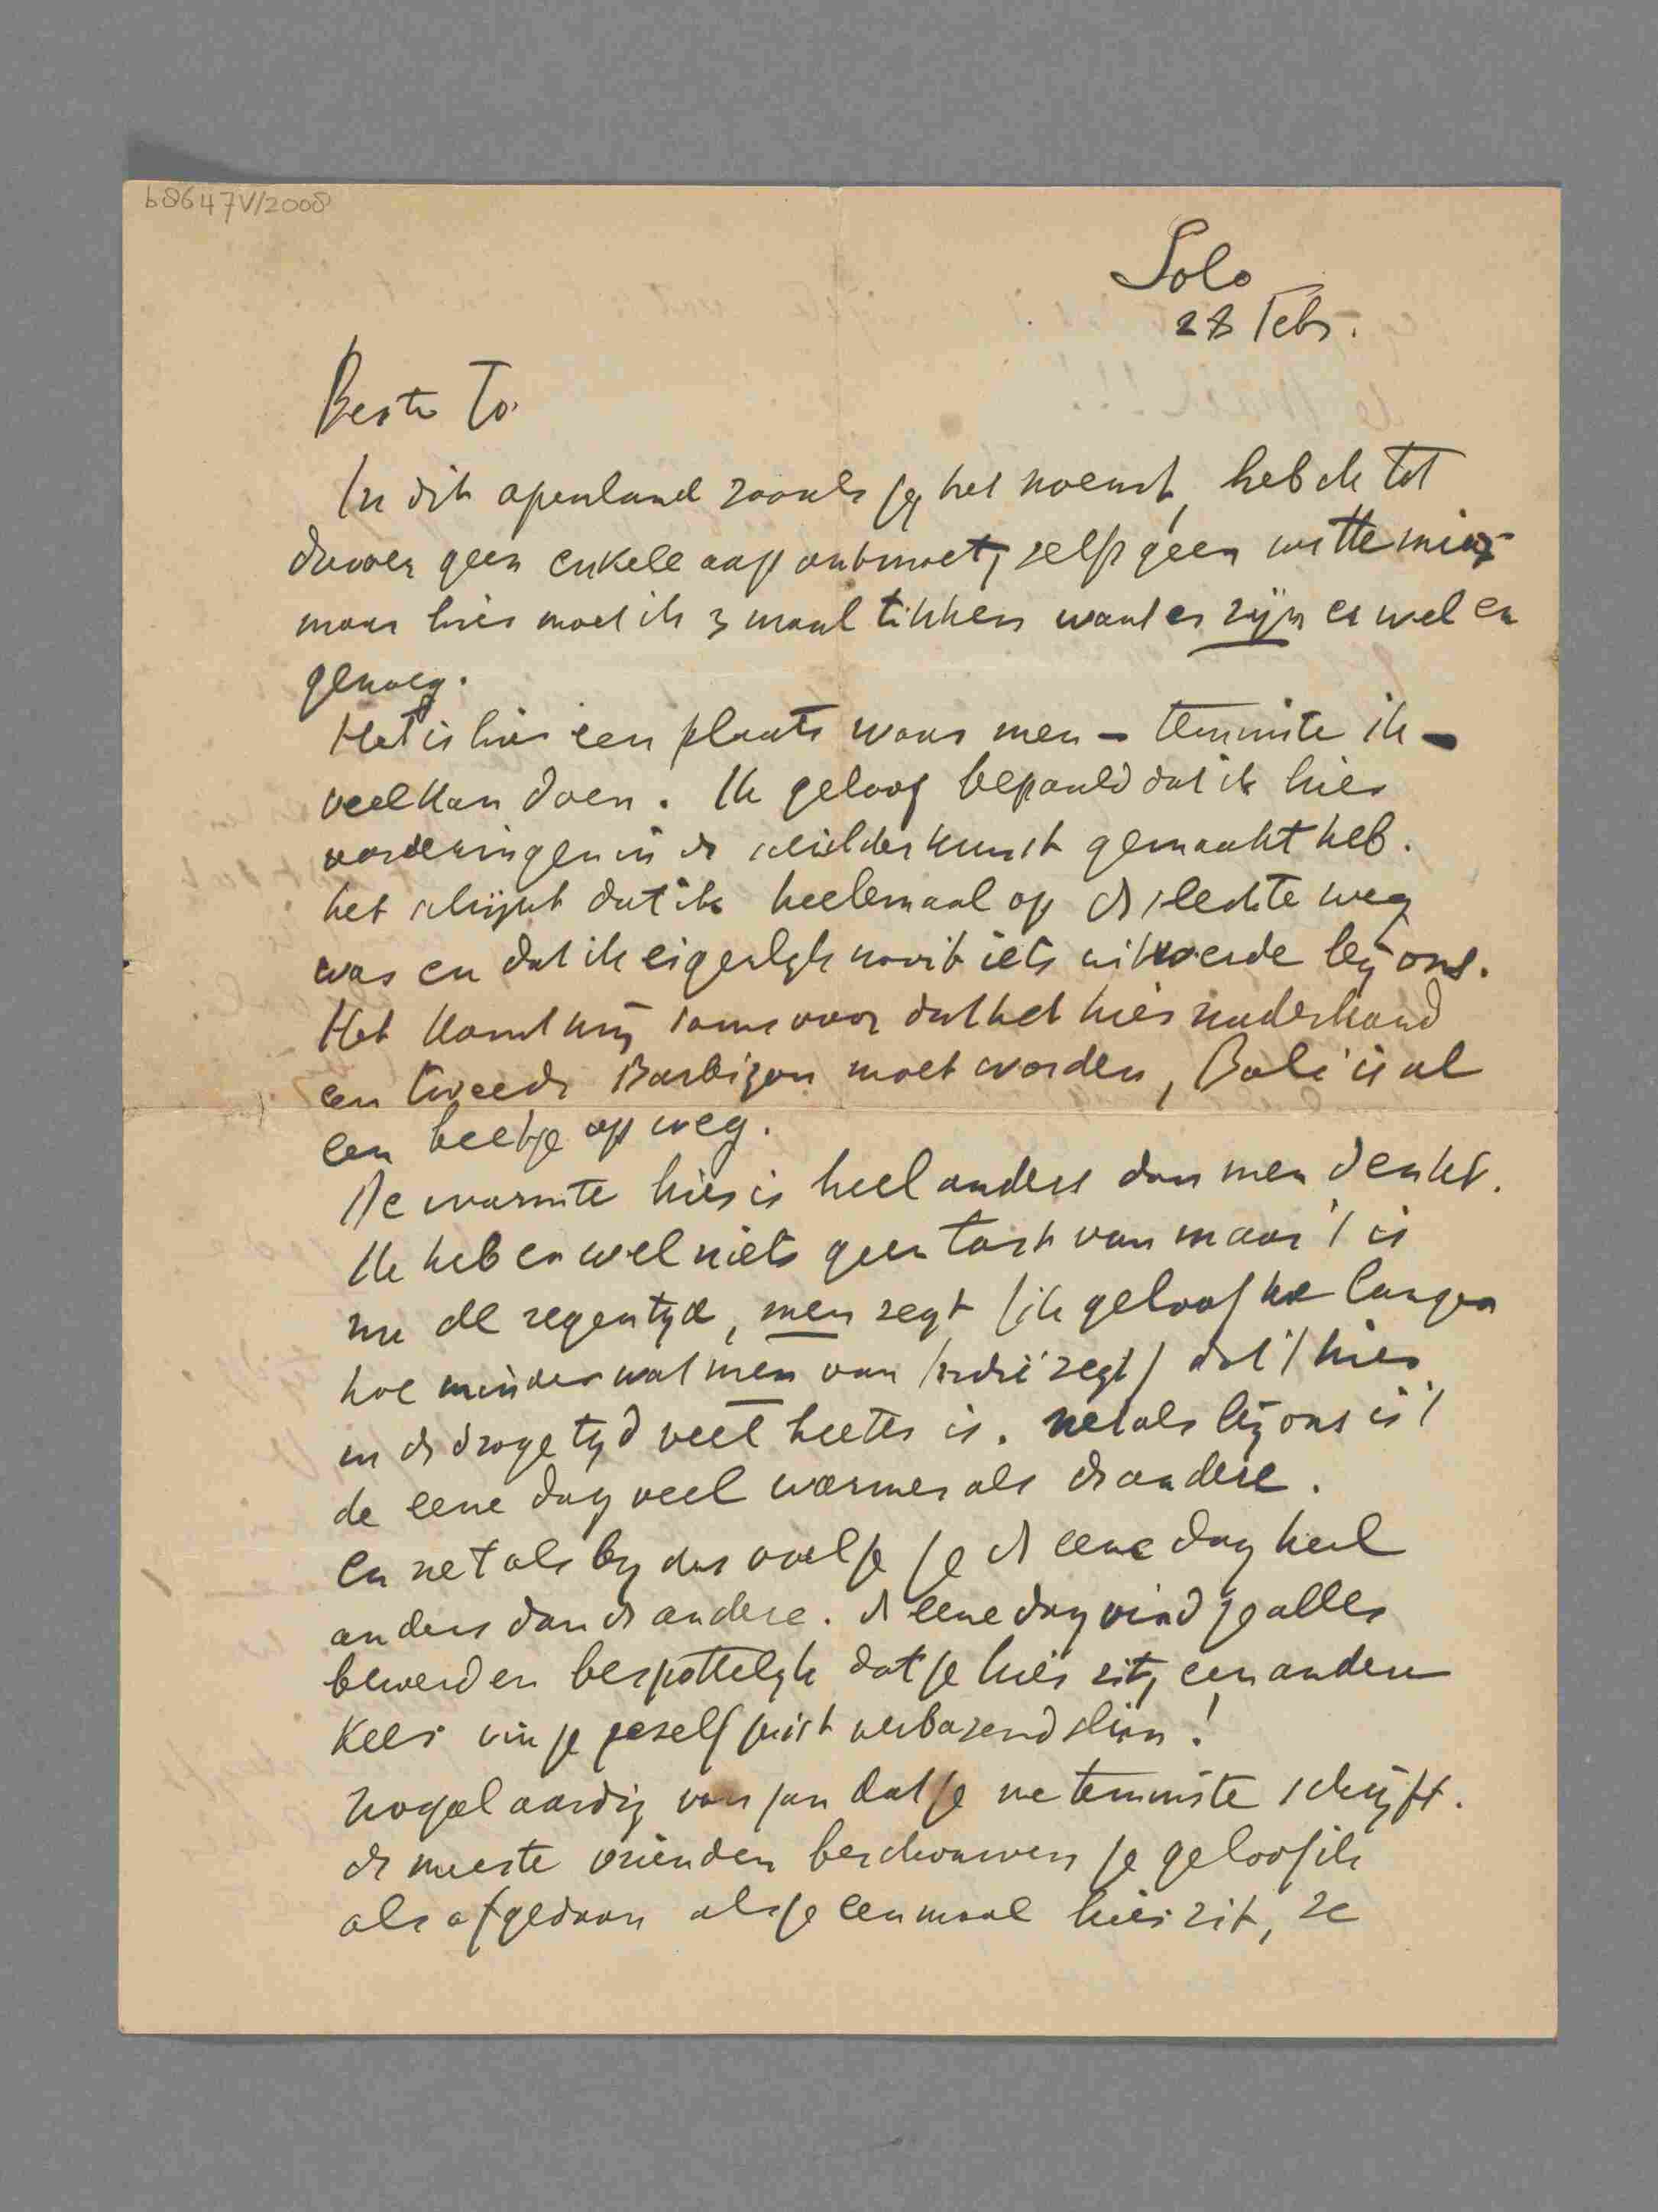 b8647V/2008
Solo
28 Febr.
Beste To.
In dit apenland zooals jij het noemt, heb ik tot
daverr geen enkele aap ontmoet, zelfs geen witte mier
maar hier moet ik 3 maal tikken want er zijn er wel en
genoeg.
Het is hier een plaats waar men – tenminste ik –
veel kan doen. Ik geloof bepaald dat ik hier
vorderingen in de schilderkunst gemaakt heb.
het schijnt dat ik heelemaal op de slechte weg
was en dat ik eigenlijk nooit iets uitvoerde bij ons.
Het komt mij soms voor dat het hier naderhand
een tweede Barbizon moet worden, Bali is al
een beetje op weg.
De warmte hier is heel anders dan men denkt.
Ik heb er wel niets geen last van maar 't is
nu de regentijd, men zegt (ik geloof hoe langer
hoe minder wat men van Indië zegt) dat 't hier
in de droge tijd veel heeter is. net als bij ons is 't
de eene dag veel warmer als de andere.
En net als bij ons voel je je de eene dag heel
anders dan de andere. de eene dag vind je alles
beroerd en bespottelijk dat je hier zit, een andere
keer vin je jezelf juist verbazend slim!
nogal aardig van jou dat je me tenminste schrijft.
de meeste vrienden beschouwen je geloof ik
als afgedaan als je eenmaal hier zit, ze